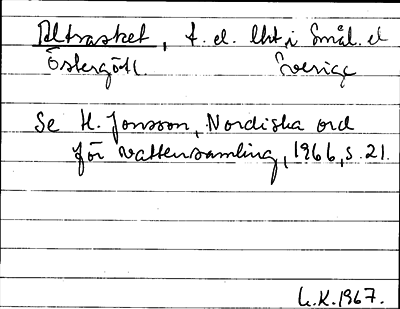 Altrasket, t. d. lht, i Smål. el
Östergötl. Sverige
Se H. Jonsson, Nordiska ord
för vattensamling, 1966, s. 21.
L.K. 1967.